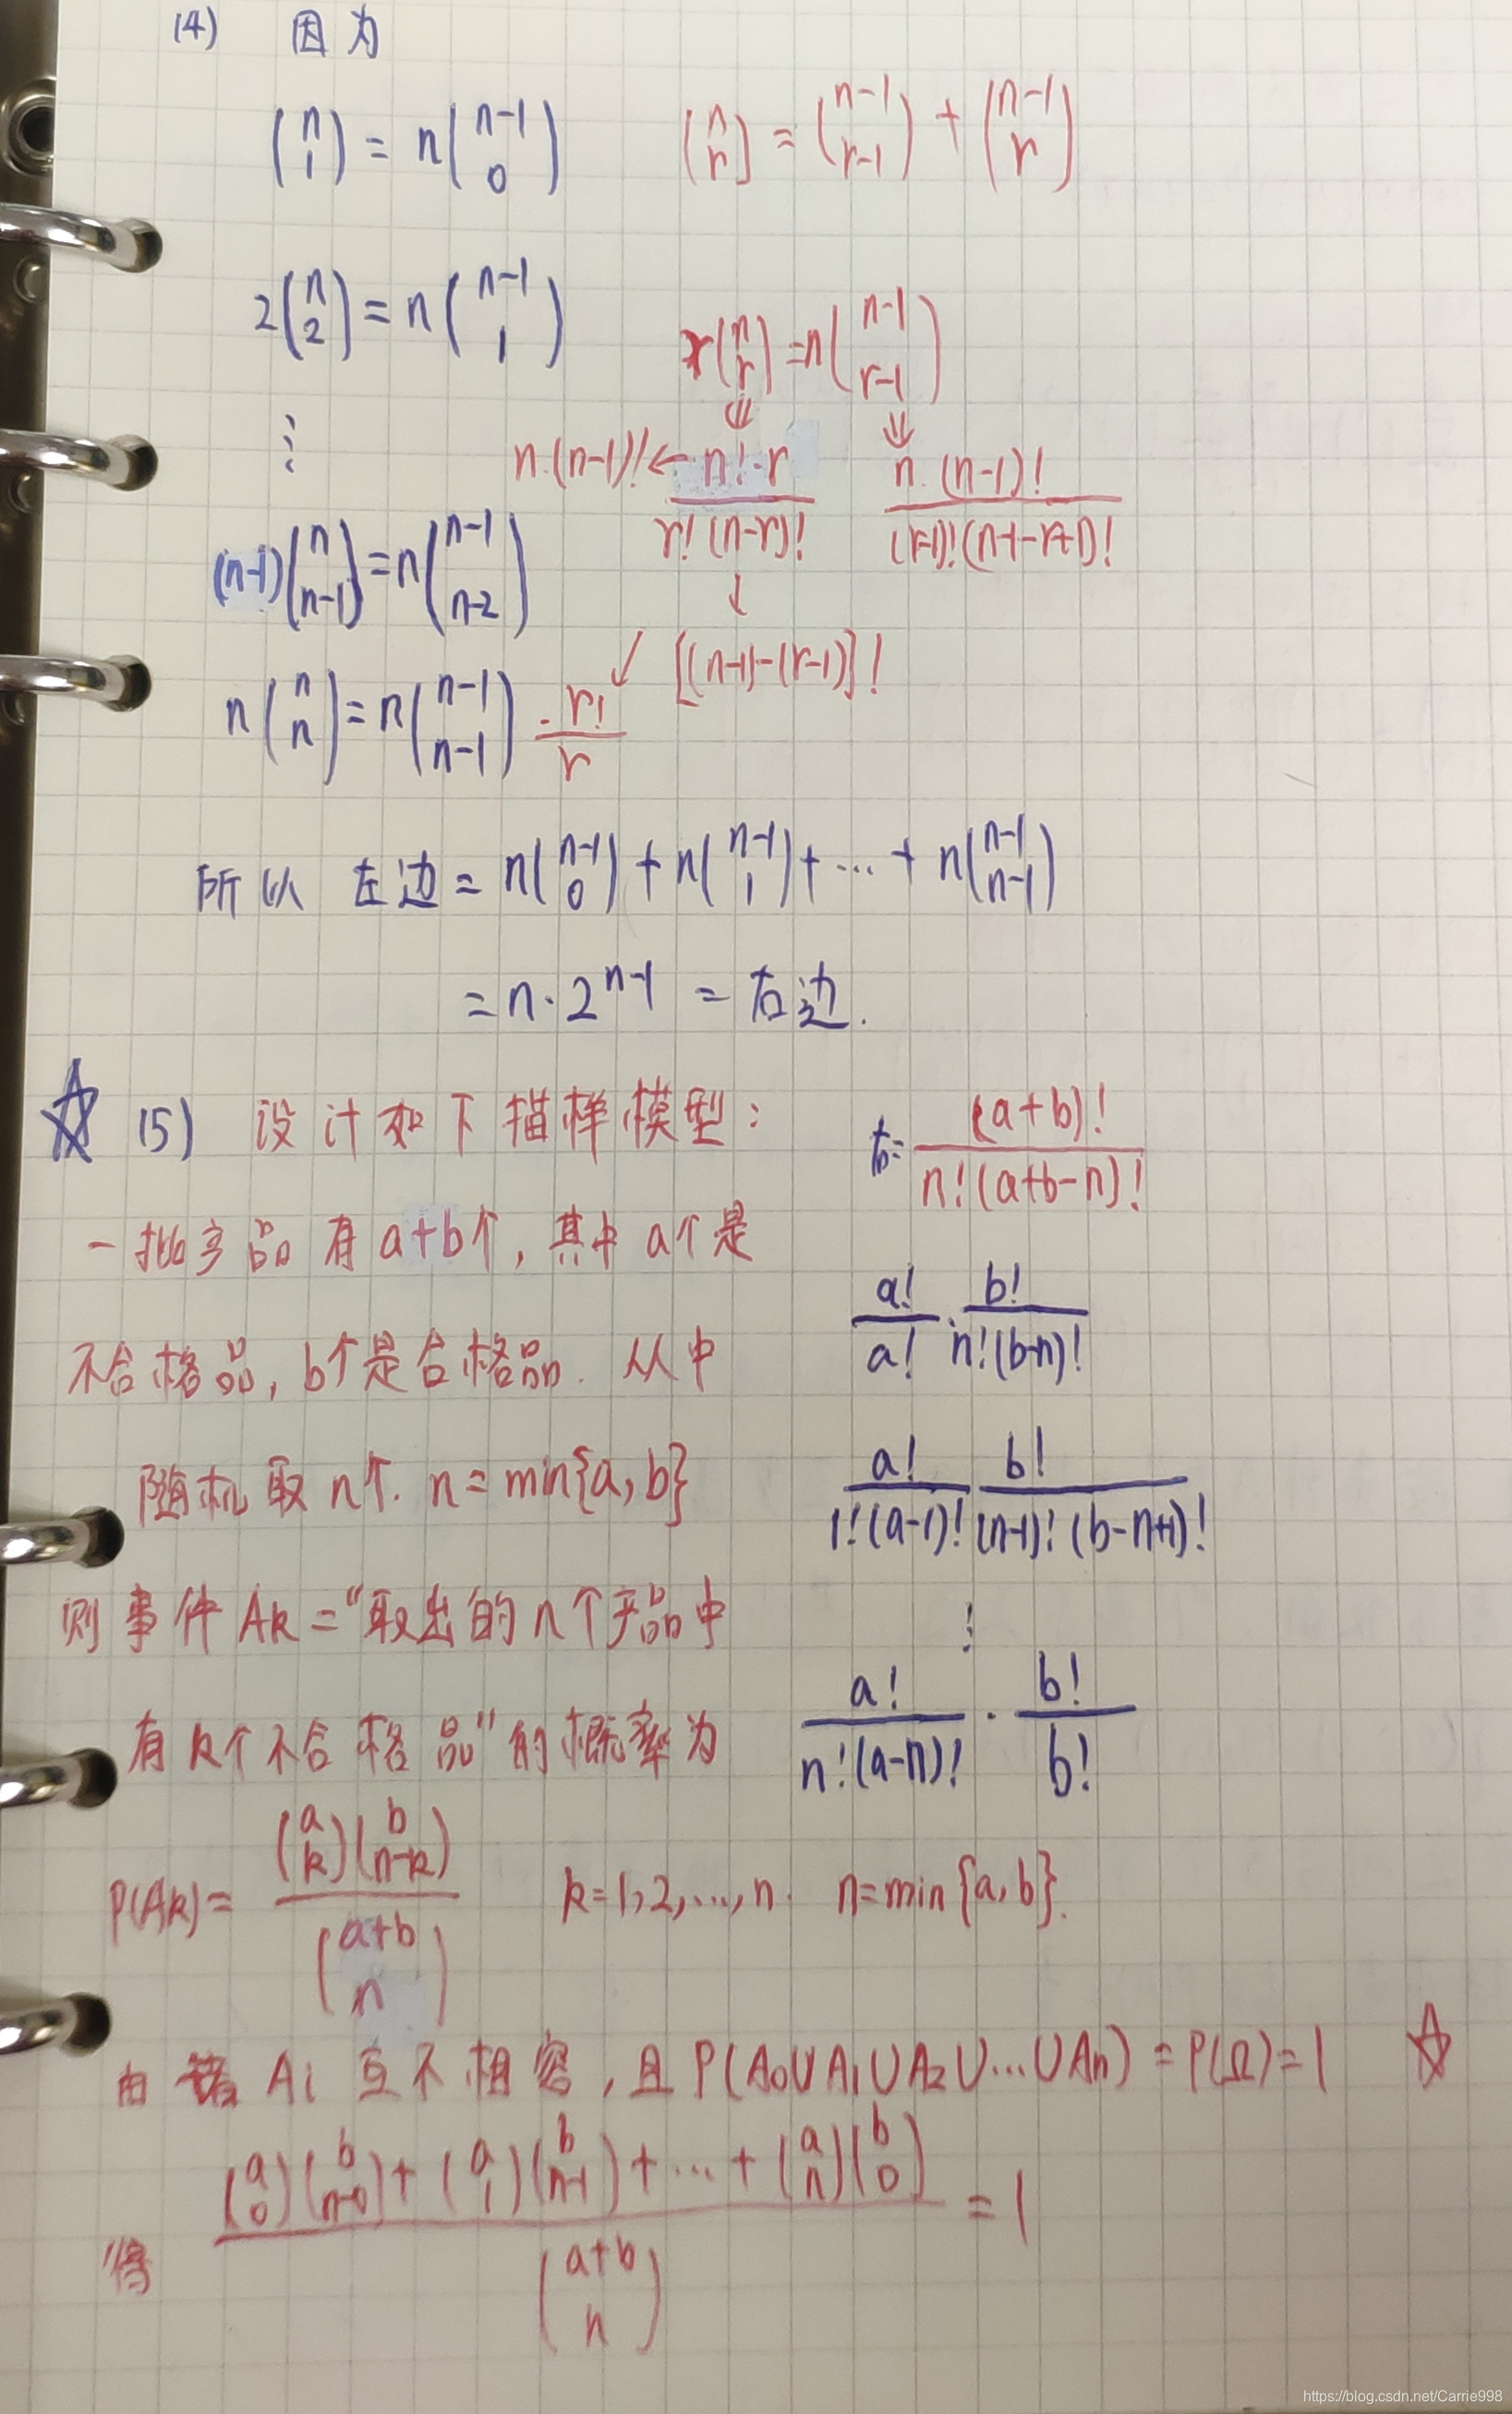 (4) 因为
(n 1) = n(n-1 0) (n r) = (n-1 r-1) + (n-1 r)
2(n 2) = n(n-1 1) r(n r) = n(n-1 r-1)
⋮ ⇓ ⇓
n·(n-1)! ← n!·r / r!(n-r)! n·(n-1)! / (r-1)!(n-1-r+1)!
(n-1)(n n-1) = n(n-1 n-2) ↓
↙ [(n-1)-(r-1)]!
n(n n) = n(n-1 n-1) r! / r
所以 左边 = n(n-1 0) + n(n-1 1) + … + n(n-1 n-1)
= n·2^(n-1) = 右边.
☆ (5) 设计如下描样模型: = (a+b)! / n!(a+b-n)!
一批产品有a+b个, 其中a个是 a!/a! · b!/n!(b-n)!
不合格品, b个是合格品. 从中
随机取n个. n = min{a, b} a!/1!(a-1)! b!/(n-1)!(b-n+1)!
则事件Ak = "取出的n个产品中 ⋮
有k个不合格品"的概率为 a!/n!(a-n)! · b!/b!
P(Ak) = (a k)(b n-k) / (a+b n) k=1,2,…,n. n=min{a,b}.
由诸Ai互不相容, 且P(A0∪A1∪A2∪…∪An) = P(Ω) = 1 ☆
得 (a 0)(b n-0) + (a 1)(b n-1) + … + (a n)(b 0) / (a+b n) = 1
https://blog.csdn.net/Carrie998